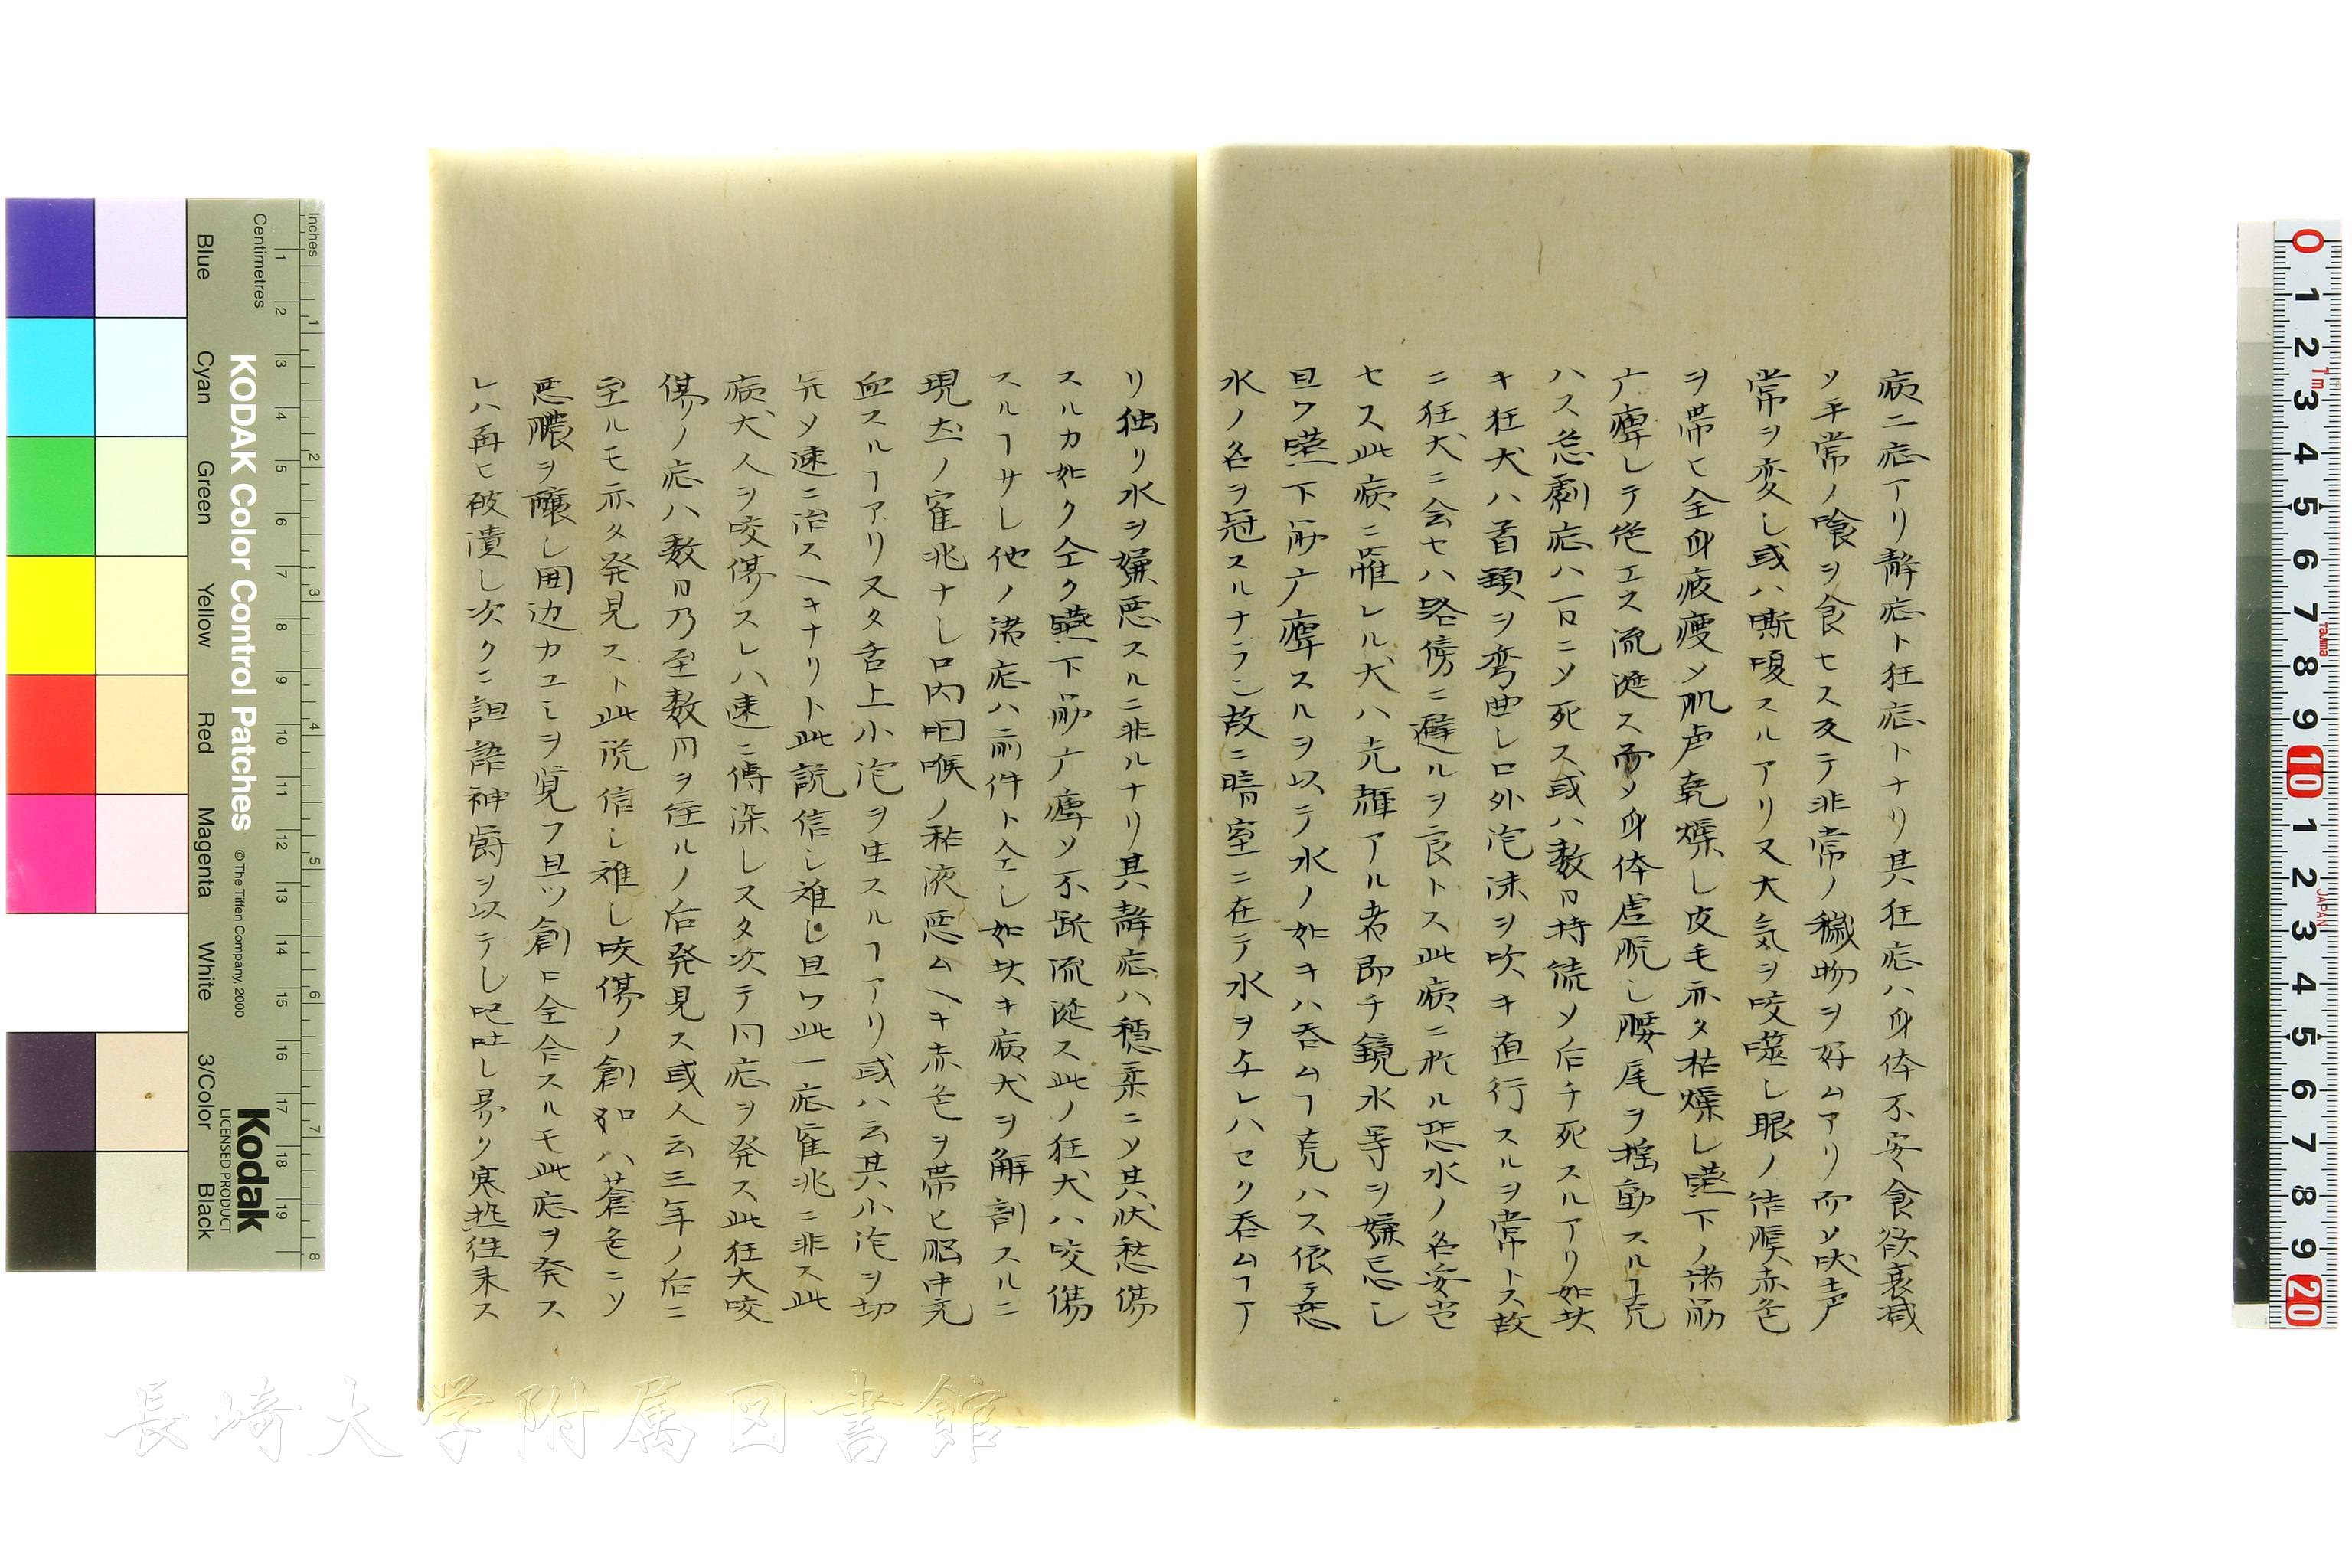 病二症アリ静症ト狂症トナリ其狂症ハ身体不安食欲衰減
ソ平常ノ喰ヲ食セス反テ非常ノ穢物ヲ好ムアリ而ソ吠声
常ヲ変し或ハ嘶嗄スルアリ又大気ヲ咬噬し眼ノ結膜赤色
ヲ帯ヒ全身疲痩メ肌膚乾燥し皮毛亦タ枯燥し嚥下ノ諸筋
广痺して絶エス流涎ス而メ身体虚脱し腰尾ヲ揺動スルヿ克
ハス急劇症ハ一日ニソ死ス或ハ数日持続ソ后チ死スルアリ如此
キ狂犬ハ首頸ヲ弯曲し口外泡沫ヲ吹キ直行スルヲ常トス故
ニ狂犬ニ会セハ路傍ニ避ルヲ良トス此病ニ於ル恐水ノ名妥当
セス此病ニ罹レル犬ハ光輝アル者即チ鏡水等ヲ嫌忌し
且ワ嚥下筋广痺スルヲ以テ水ノ如キハ呑ムヿ克ハス依テ恐
水ノ名ヲ冠スルナラン故ニ暗室ニ在テ水ヲ与レハヨク呑ムヿア
リ独リ水ヲ嫌悪スルニ非ルナリ其静症ハ穏柔ニソ其状愁傷
スルカ如ク全ク嚥下筋广痺ソ不断流涎ス此ノ狂犬ハ咬傷
スルヿナし他ノ諸症ハ前件ト仝し如此キ病犬ヲ解剖スルニ
現然ノ確兆ナし口内咽喉ノ粘液悪ムヘキ赤色ヲ帯ヒ脳中充
血スルヿアリ又タ舌上小泡ヲ生スルヿアリ或ハ云其小泡ヲ切
矢メ速ニ治スヘキナリト此説信し難し且ワ此一症確兆ニ非ス此
病犬人ヲ咬傷スレハ速ニ傳染し又タ次テ同症ヲ発ス此狂犬咬
傷ノ症ハ数日乃至数月ヲ往ルノ后発見ス或人云三年ノ后ニ
至ルモ亦タ発見スト此説信し難し咬傷ノ創口ハ蒼色ニソ
悪膿ヲ醸し囲辺カユミヲ覚フ且ツ創口全合スルモ此症ヲ発ス
レハ再ヒ破潰し次クニ神欝ヲ以テし呕吐し昇リ寒熱往来ス
Inches
Centimetres
KODAK Color Control Patches
©The Tiffen Company, 2000
Kodak
LICENSED PRODUCT
Blue
Cyan
Green
Yellow
Red
Magenta
White
3/Color
Black
長崎大学附属図書館